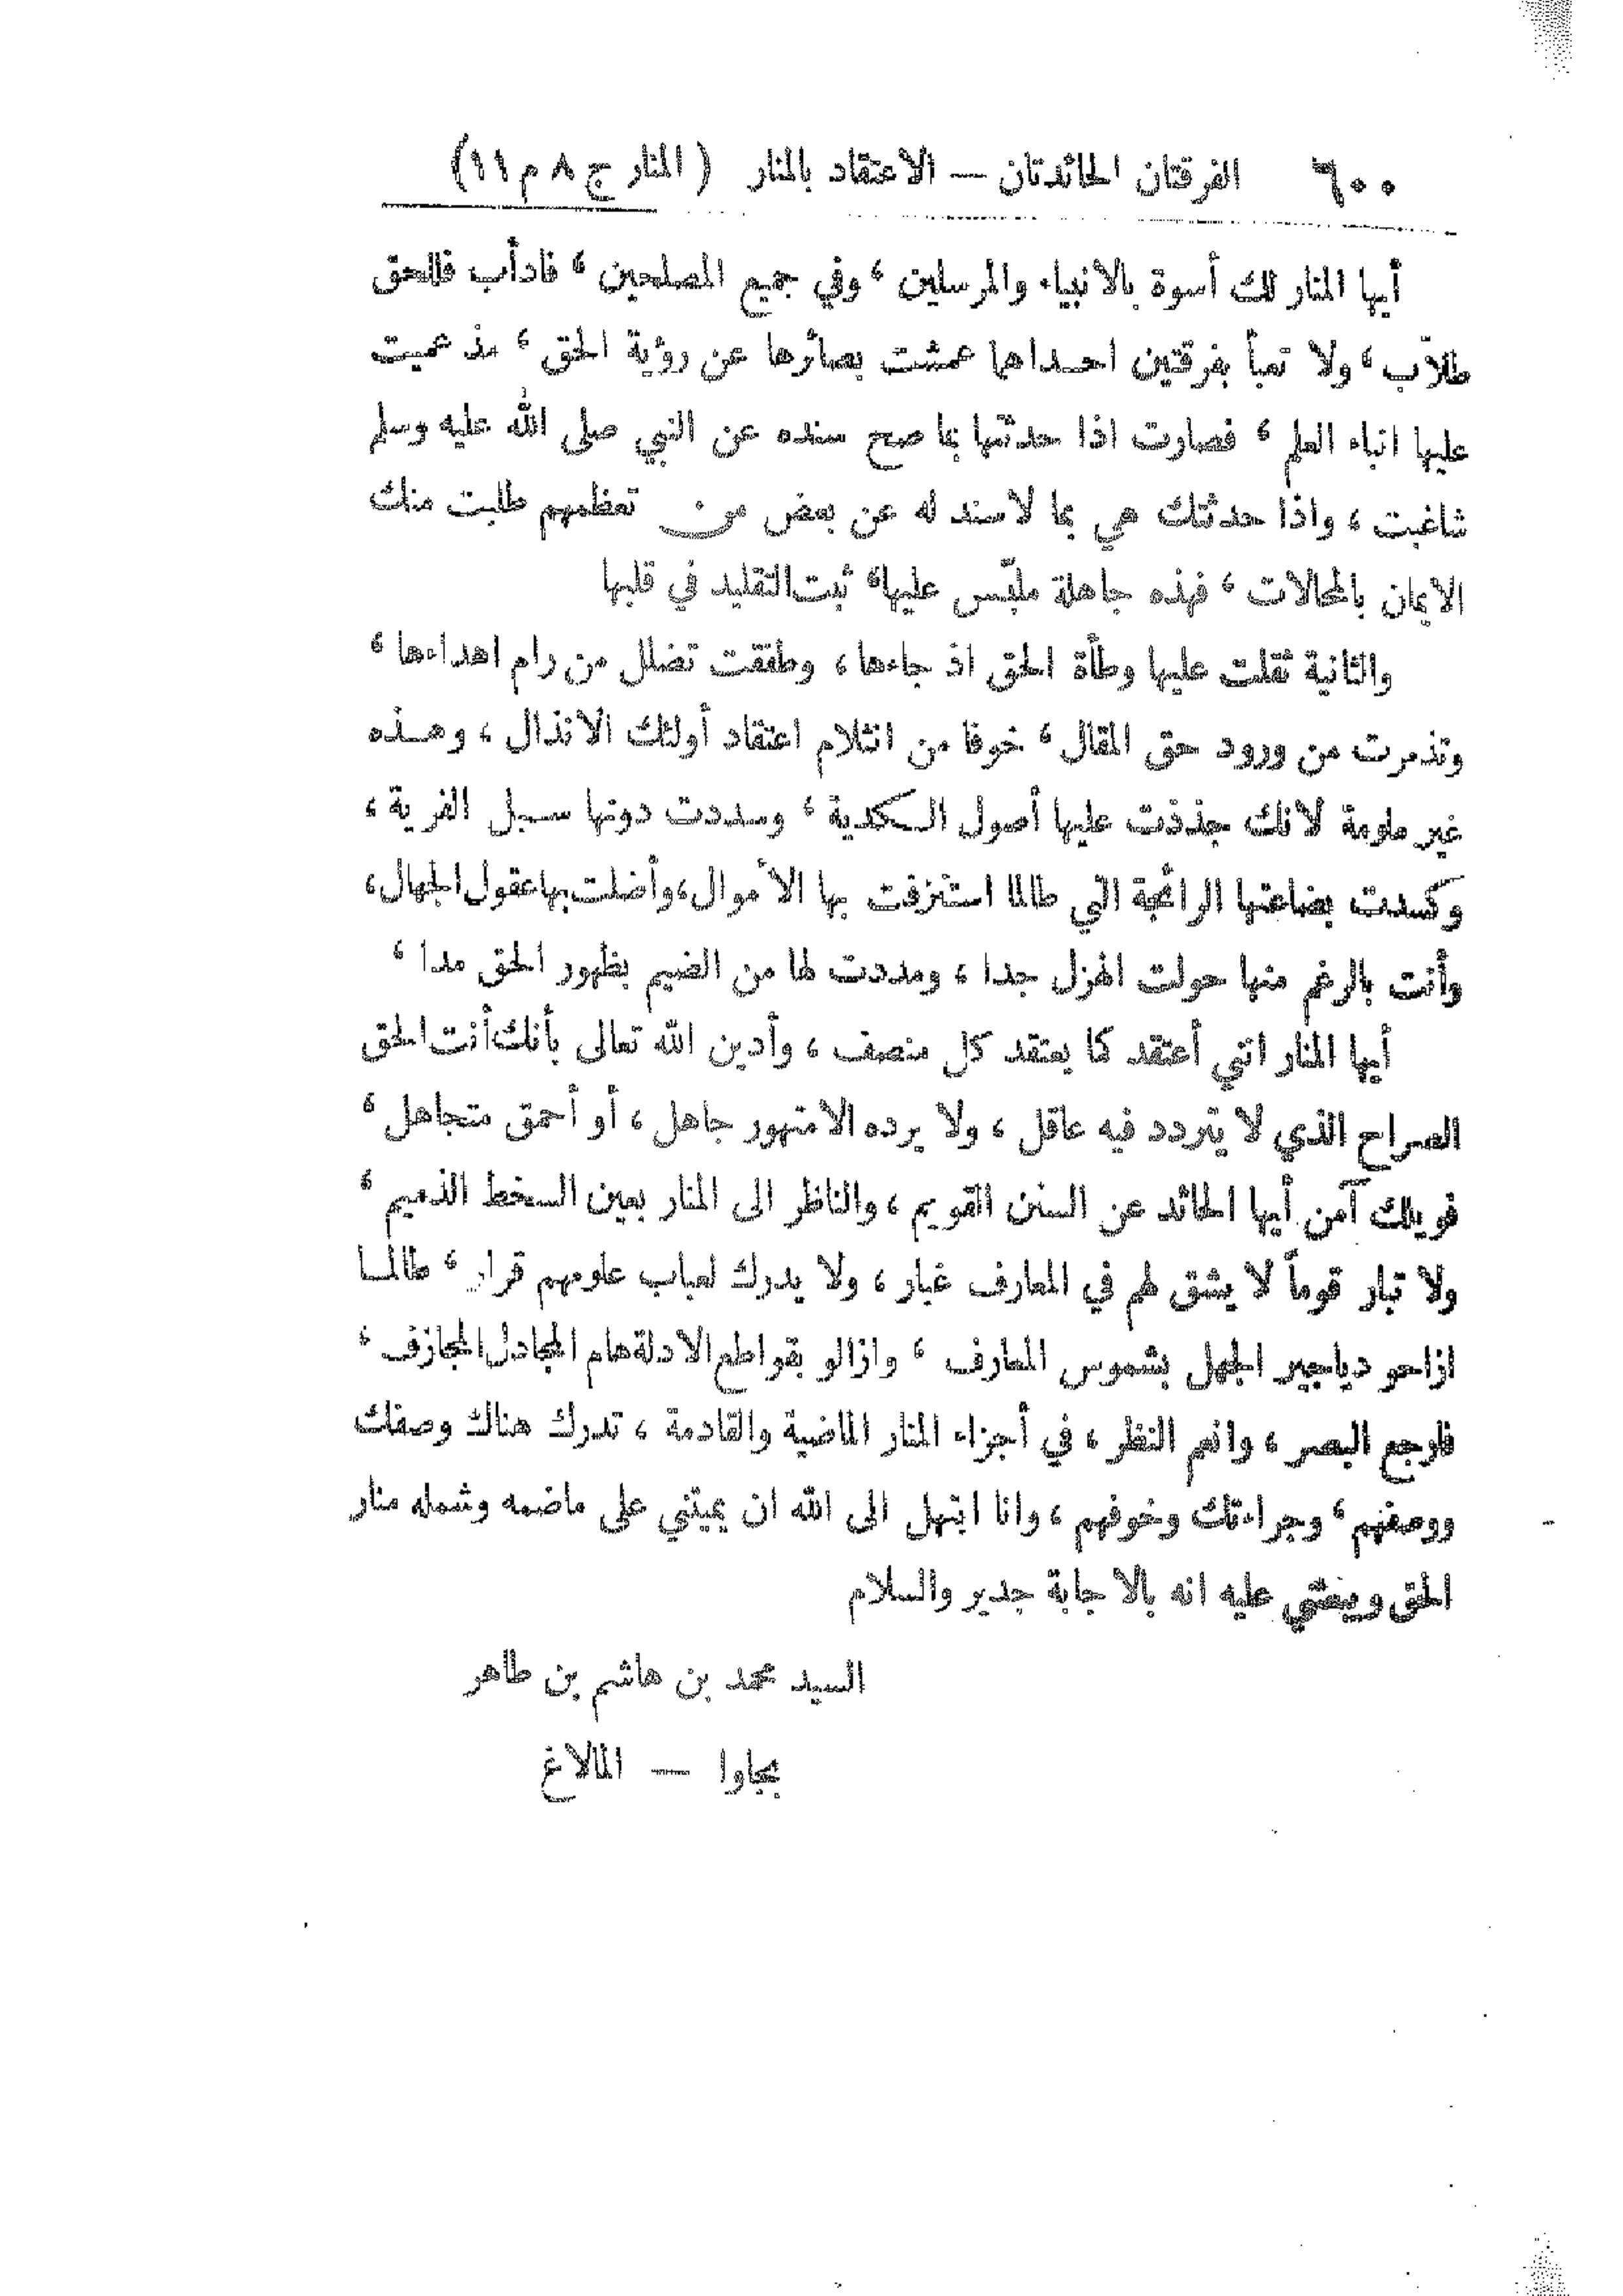 ٦٠٠ الفرقتان الحائدتان — الاعتقاد بالمنار ( المنار ج ٨ م ١١)
أيها المنار لك أسوة بالانبياء والمرسلين ، وفي جميع المصلحين ، فادأب فللحق
طلاّب ، ولا تعبأ بفرقتين احداهما عمشت بصائرها عن رؤية الحق ، مذ عميت
عليها انباء العلم ، فصارت اذا حدثتها بما صح سنده عن النبي صلى الله عليه وسلم
شاغبت ، واذا حدثتك هي بما لاسند له عن بعض من تعظمهم طلبت منك
الايمان بالمحالات ، فهذه جاهلة ملبّس عليها، ثبت التقليد في قلبها
والثانية ثقلت عليها وطأة الحق اذ جاءها ، وطفقت تضلل من رام اهداءها ،
وتذمرت من ورود حق المقال ، خوفا من انثلام اعتقاد أولئك الانذال ، وهــذه
غير ملومة لانك جذذت عليها أصول الــكدية ، وسددت دونها سبل الفرية ،
وكسدت بضاعتها الرائجة التي طالما استنزفت بها الأموال، وأضلت بها عقول الجهال،
وأنت بالرغم منها حولت الهزل جدا ، ومددت لها من الضيم بظهور الحق مدا ،
أيها المنار انني أعتقد كما يعتقد كل منصف ، وأدين الله تعالى بأنك أنت الحق
الصراح الذي لا يتردد فيه عاقل ، ولا يرده الا متهور جاهل ، أو أحمق متجاهل ،
فويلك آمن أيها الحائد عن السنن القويم ، والناظر الى المنار بعين السخط الذميم ،
ولا تبار قوماً لا يشق لهم في المعارف غبار ، ولا يدرك لعباب علومهم قرار ، طالمــا
ازاحو دياجير الجهل بشموس المعارف ، وازالو بقواطع الادلة هام المجادل المجازف ،
فارجع البصر ، وانعم النظر ، في أجزاء المنار الماضية والقادمة ، تدرك هناك وصفك
ووصفهم ، وجراءتك وخوفهم ، وانا ابتهل الى الله ان يميتني على ماضمه وشمله منار
الحق ويبعثني عليه انه بالاجابة جدير والسلام
السيد محمد بن هاشم بن طاهر
بجاوا — المالاغ